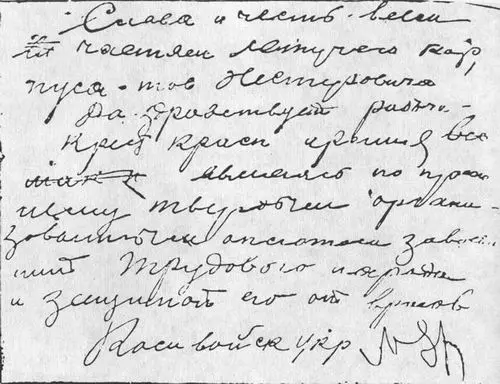 Слава и честь всем
частям летучего кор,
пуса. тов Нестеровича
Да здравствует рабоче-
Крест красн армия вся
являясь по преж
нему твердым органи
зованным оплотом завоев
трудового народа
и защитой его от врагов
Ком войск Укр